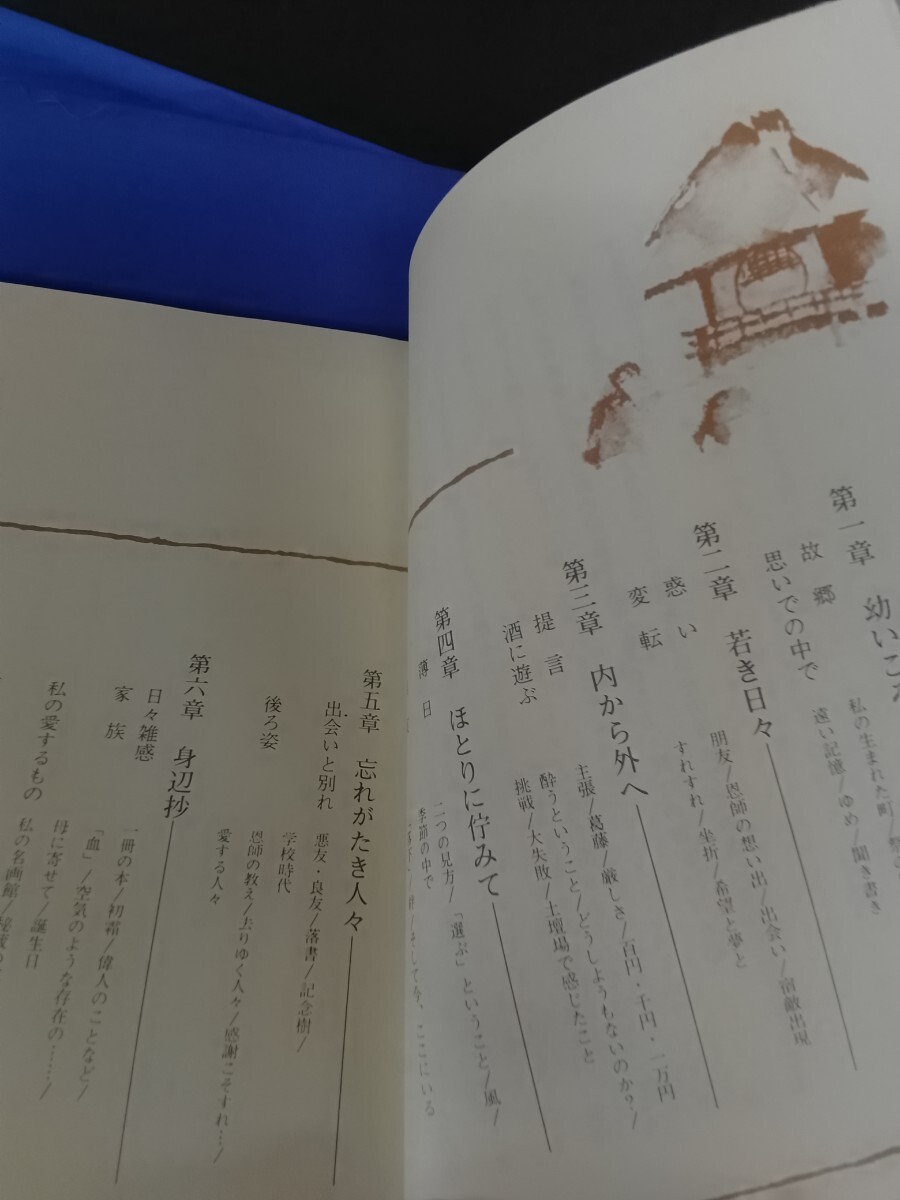 第一章 幼い
故郷
私の生まれた町/
遠い記憶/ゆめ/聞き書き
思いでの中で
第二章 若き日々
惑い
朋友/恩師の想い出/出会い/宿敵出現
変転
すれすれ/坐折/希望と夢と
第三章 内から外へ
提言
主張/葛藤/厳しさ/百円・千円・一万円
酔うということ/どうしようもないのか?/
酒に遊ぶ
挑戦/大失敗/土壇場で感じたこと
第四章 ほとりに佇みて
薄日
二つの見方/「選ぶ」ということ/風/
季節の中で
そして今、ここにいる
第五章 忘れがたき人々
出会いと別れ
悪友・良友/落書/記念樹/
学校時代
後ろ姿
恩師の教え/去りゆく人々/感謝こそすれ…/
愛する人々
第六章 身辺抄
日々雑感
一冊の本/初霜/偉人のことなど/
家族
「血」/空気のような存在の……/
母に寄せて/誕生日
私の愛するもの
私の名画館/